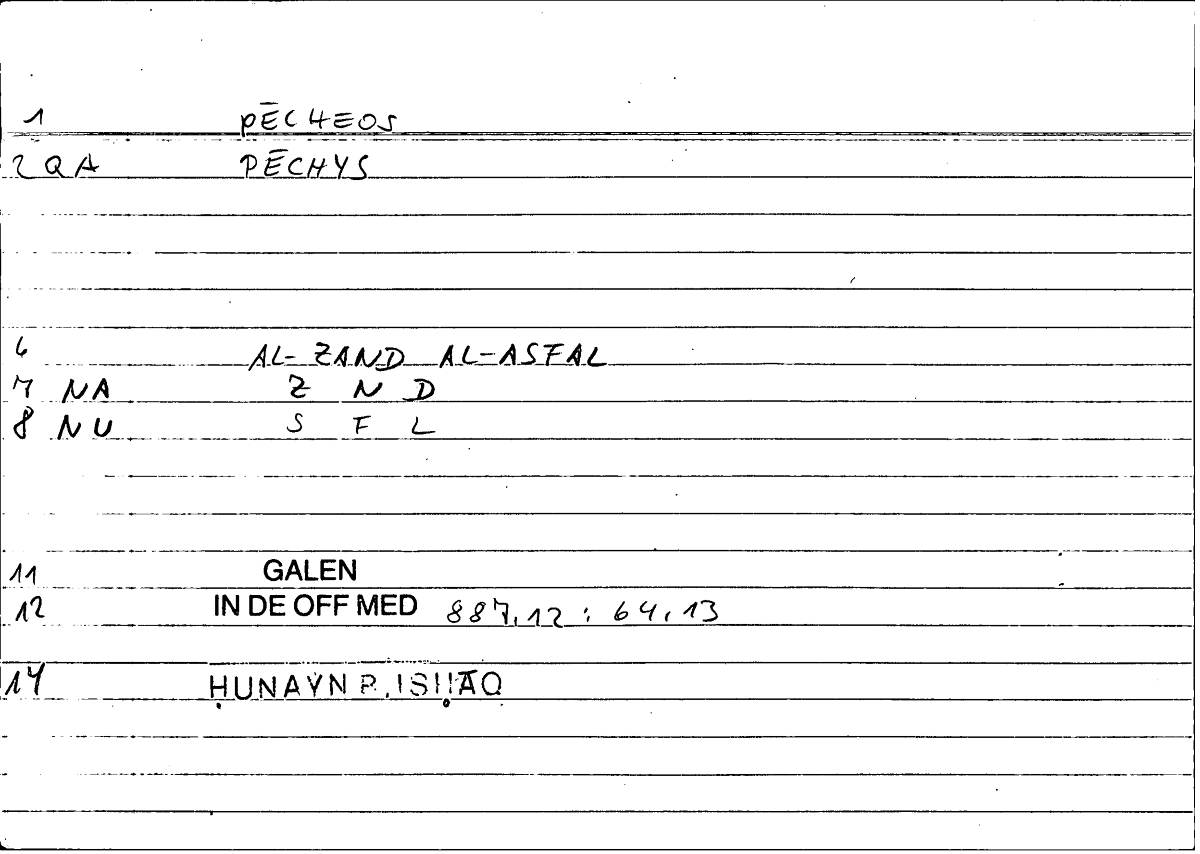 1 PĒCHEOS
2 QA PĒCHYS
6 AL-ZAND AL-ASFAL
7 NA Z N D
8 NU S F L
11 GALEN
12 IN DE OFF MED 887,12 : 64,13
14 ḤUNAYN B. ISḤĀQ